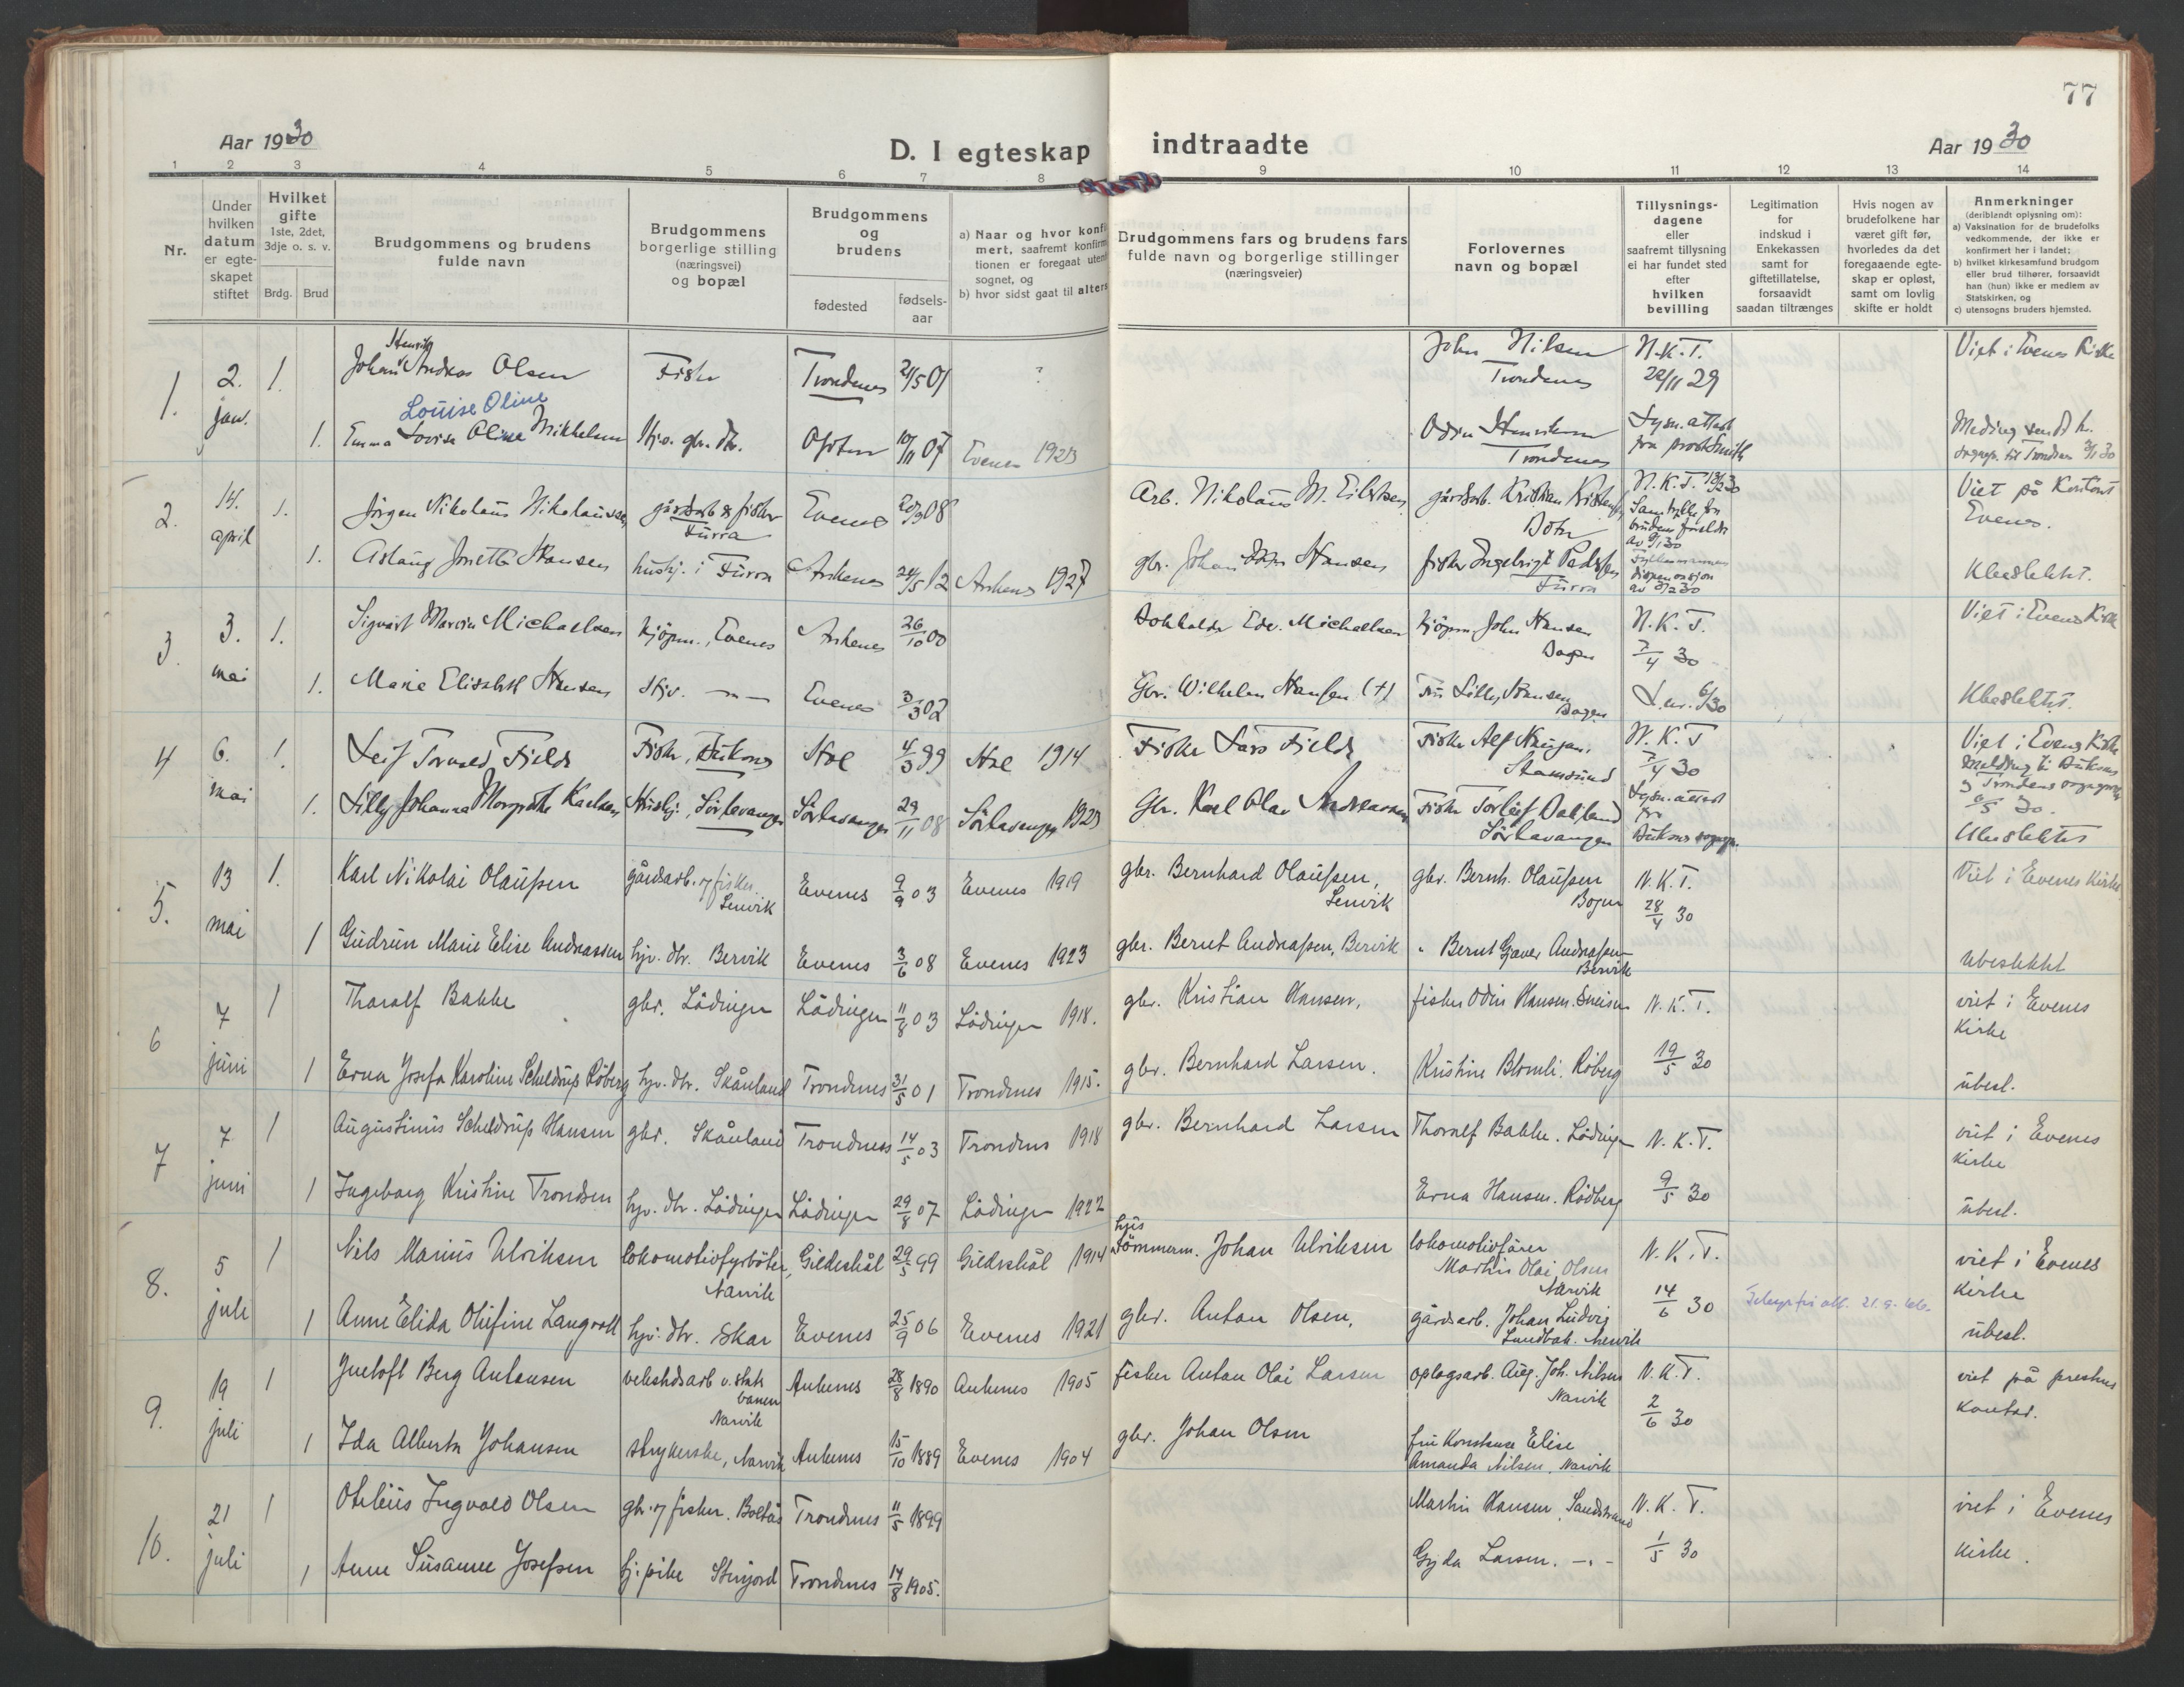 77
Aar 1930
D. I egteskap indtraadte
Aar 1930
1 2 3 4 5 6 7 8 9 10 11 12 13 14
Nr.
Under hvilken datum er egte-skapet stiftet
Hvilket gifte 1ste, 2det, 3dje o. s. v.
Brdg. Brud
Brudgommens og brudens fulde navn
Brudgommens borgerlige stilling (næringsvei) og bopæl
Brudgommens og brudens
fødested
fødsels-aar
a) Naar og hvor konfi
mert, saafremt konfirm
tionen er foregaat uten
sognet, og
b) hvor sidst gaat til alters
Brudgommens fars og brudens fars
fulde navn og borgerlige stillinger
(næringsveier)
Forlovernes
navn og bopæl
Tillysnings-
dagene
eller
saafremt tillysning
ei har fundet sted
efter
hvilken
bevilling
Legitimation
for
indskud i
Enkekassen
samt for
giftetillatelse,
forsaavidt
saadan tiltrænges
Hvis nogen av
brudefolkene har
været gift før,
hvorledes da det
foregaaende egte-
skap er opløst,
samt om lovlig
skifte er holdt
Anmerkninger
(deriblandt oplysning om):
a) Vaksination for de brudefolks
vedkommende, der ikke er
konfirmert her i landet;
b) hvilket kirkesamfund brudgom
eller brud tilhører, forsaavidt
han (hun) ikke er medlem av
Statskirken, og
c) utensogns bruders hjemsted.
1. 2. jan. 1. Johan Henrik Andreas Olsen Fisker Trondenes 21/5 01 ? John Nilsen Trondenes N.K.T. 22/11 29 Viet i Evenes Kirke
Louise Oline
1. Emma Lovise Oline Mikkelsen Hjv. gbr. dtr. Ofoten 10/11 07 Evenes 1923 Odin Trondenes Lysn. attest fra prost Smith
2. 14. april 1. Jörgen Nikolaus Nikolaussen gårdsarb & fisker Furra Evenes 20/9 08 Arb. Nikolaus M. Eilertsen gårdarb. Kristian N.K.T. 12/2 30 Viet på Kontoret Evenes.
1. Aslaug Jonette Hansen hushj. i Furra Ankenes 24/5 12 Ankenes 1927 gbr. Johan Hansen fisker Ingebrigt Furra dispensasjon Ubeslektet.
3. 3. mai 1. Sigvart Marvin Michaelsen kjöpm., Evenes Ankenes 26/10 00 Bokholder Edv. Michaelsen kjöpm John Hansen Bogen N.K.T. 7/4 30 Viet i Evenes Kirke
1. Marie Elisabeth Hansen Hjv. -"- Evenes 3/3 02 Gbr. Wilhelm Hansen (+) Fru Lilly Hansen Bogen Ubeslektet.
4 6. mai 1. Leif Torvald Fjeld Fisker, Buksnes Hol 4/3 99 Hol 1914 Fisker Lars Fjeld Fisker Alf Stamsund N.K.T 7/4 30 Viet i Evenes Kirke
1. Lilly Johanna Margrethe Karlsen Hushj., Sörlavangen Sörlavangen 29/11 08 Sörlavangen 1923 Gbr. Karl Olai Andreassen Fisker Torleif Sörlavangen Lysn. attest fra Buksnes sogn. 6/5 30. Ubeslektet
5. 13 mai 1. Karl Nikolai Olaussen gårdsarb. og fisker. Lenvik Evenes 9/9 03 Evenes 1919 gbr. Bernhard Olaussen, Lenvik gbr. Bernh. Olaussen Bogen N.K.T. 28/4 30 Viet i Evenes Kirke
1 Gudrun Marie Elise Andreassen hjv. dtr. Bervik Evenes 3/6 08 Evenes 1923 gbr. Bernt Andreassen, Bervik " Bernt Andreassen Bervik ubeslektet
6 7 juni 1 Tharalf Bakke gbr. Lödingen Lödingen 11/8 03 Lödingen 1918. gbr. Kristian Hansen, fisker Odin Hansen. N.K.T. viet i Evenes Kirke
1 Erna Josefa Karoline Scheldrup Röberg hjv. dtr. Skånland Trondenes 31/5 01 Trondenes 1915. gbr. Bernhard Larsen. Kristine Blomli. Röberg 19/5 30 ubesl.
7 7 juni 1 Augustinus Scheldrup Hansen gbr. Skånland Trondenes 14/5 03 Trondenes 1918 gbr. Bernhard Larsen Thoralf Bakke. Lödingen N.K.T. viet i Evenes kirke
1 Ingeborg Kristine Trondsen hjv. dtr. Lödingen Lödingen 29/8 07 Lödingen 1922 Erna Hansen. Rödberg 9/5 30 ubesl.
8. 5 juli 1 Nils Marius Ulriksen lokomotivfyrböter, Narvik Gildeskål 29/5 99 Gildeskål 1914 hustömmerm. Johan Ulriksen lokomotivförer Martin Olai Olsen Narvik N.K.T. viet i Evenes Kirke
1 Anne Elida Olufine Langvoll hjv. dtr. Skar Evenes 25/9 06 Evenes 1921 gbr. Anton Olsen, gårdsarb. Johan Ludvig Lundbak. Narvik 14/6 30 ubesl.
9. 19 juli 1 Ingtoft Berg Antonsen verkstedsarb v. stats banen Narvik Ankenes 28/8 1890 Ankenes 1905 fisker Anton Olai Larsen oplagsarb. Aug. Joh. Nilsen Narvik N.K.T. 2/6 30 viet på prestens kontor.
1 Ida Alberta Johansen strykerske, Narvik Ankenes 15/10 1889 Evenes 1904 gbr. Johan Olsen fru Konstanse Elise Amanda Nilsen. Narvik
10. 21 juli 1 Oteleus Ingvald Olsen gbr. og fisker. Boltås Trondenes 11/5 1899 Martin Hansen, Sandstrand N.K.T. viet i Evenes kirke.
1 Anne Susanne Josefsen hj. pike Stinjord Trondenes 14/8 1905. Gyda Larsen. -"- 1/5 30